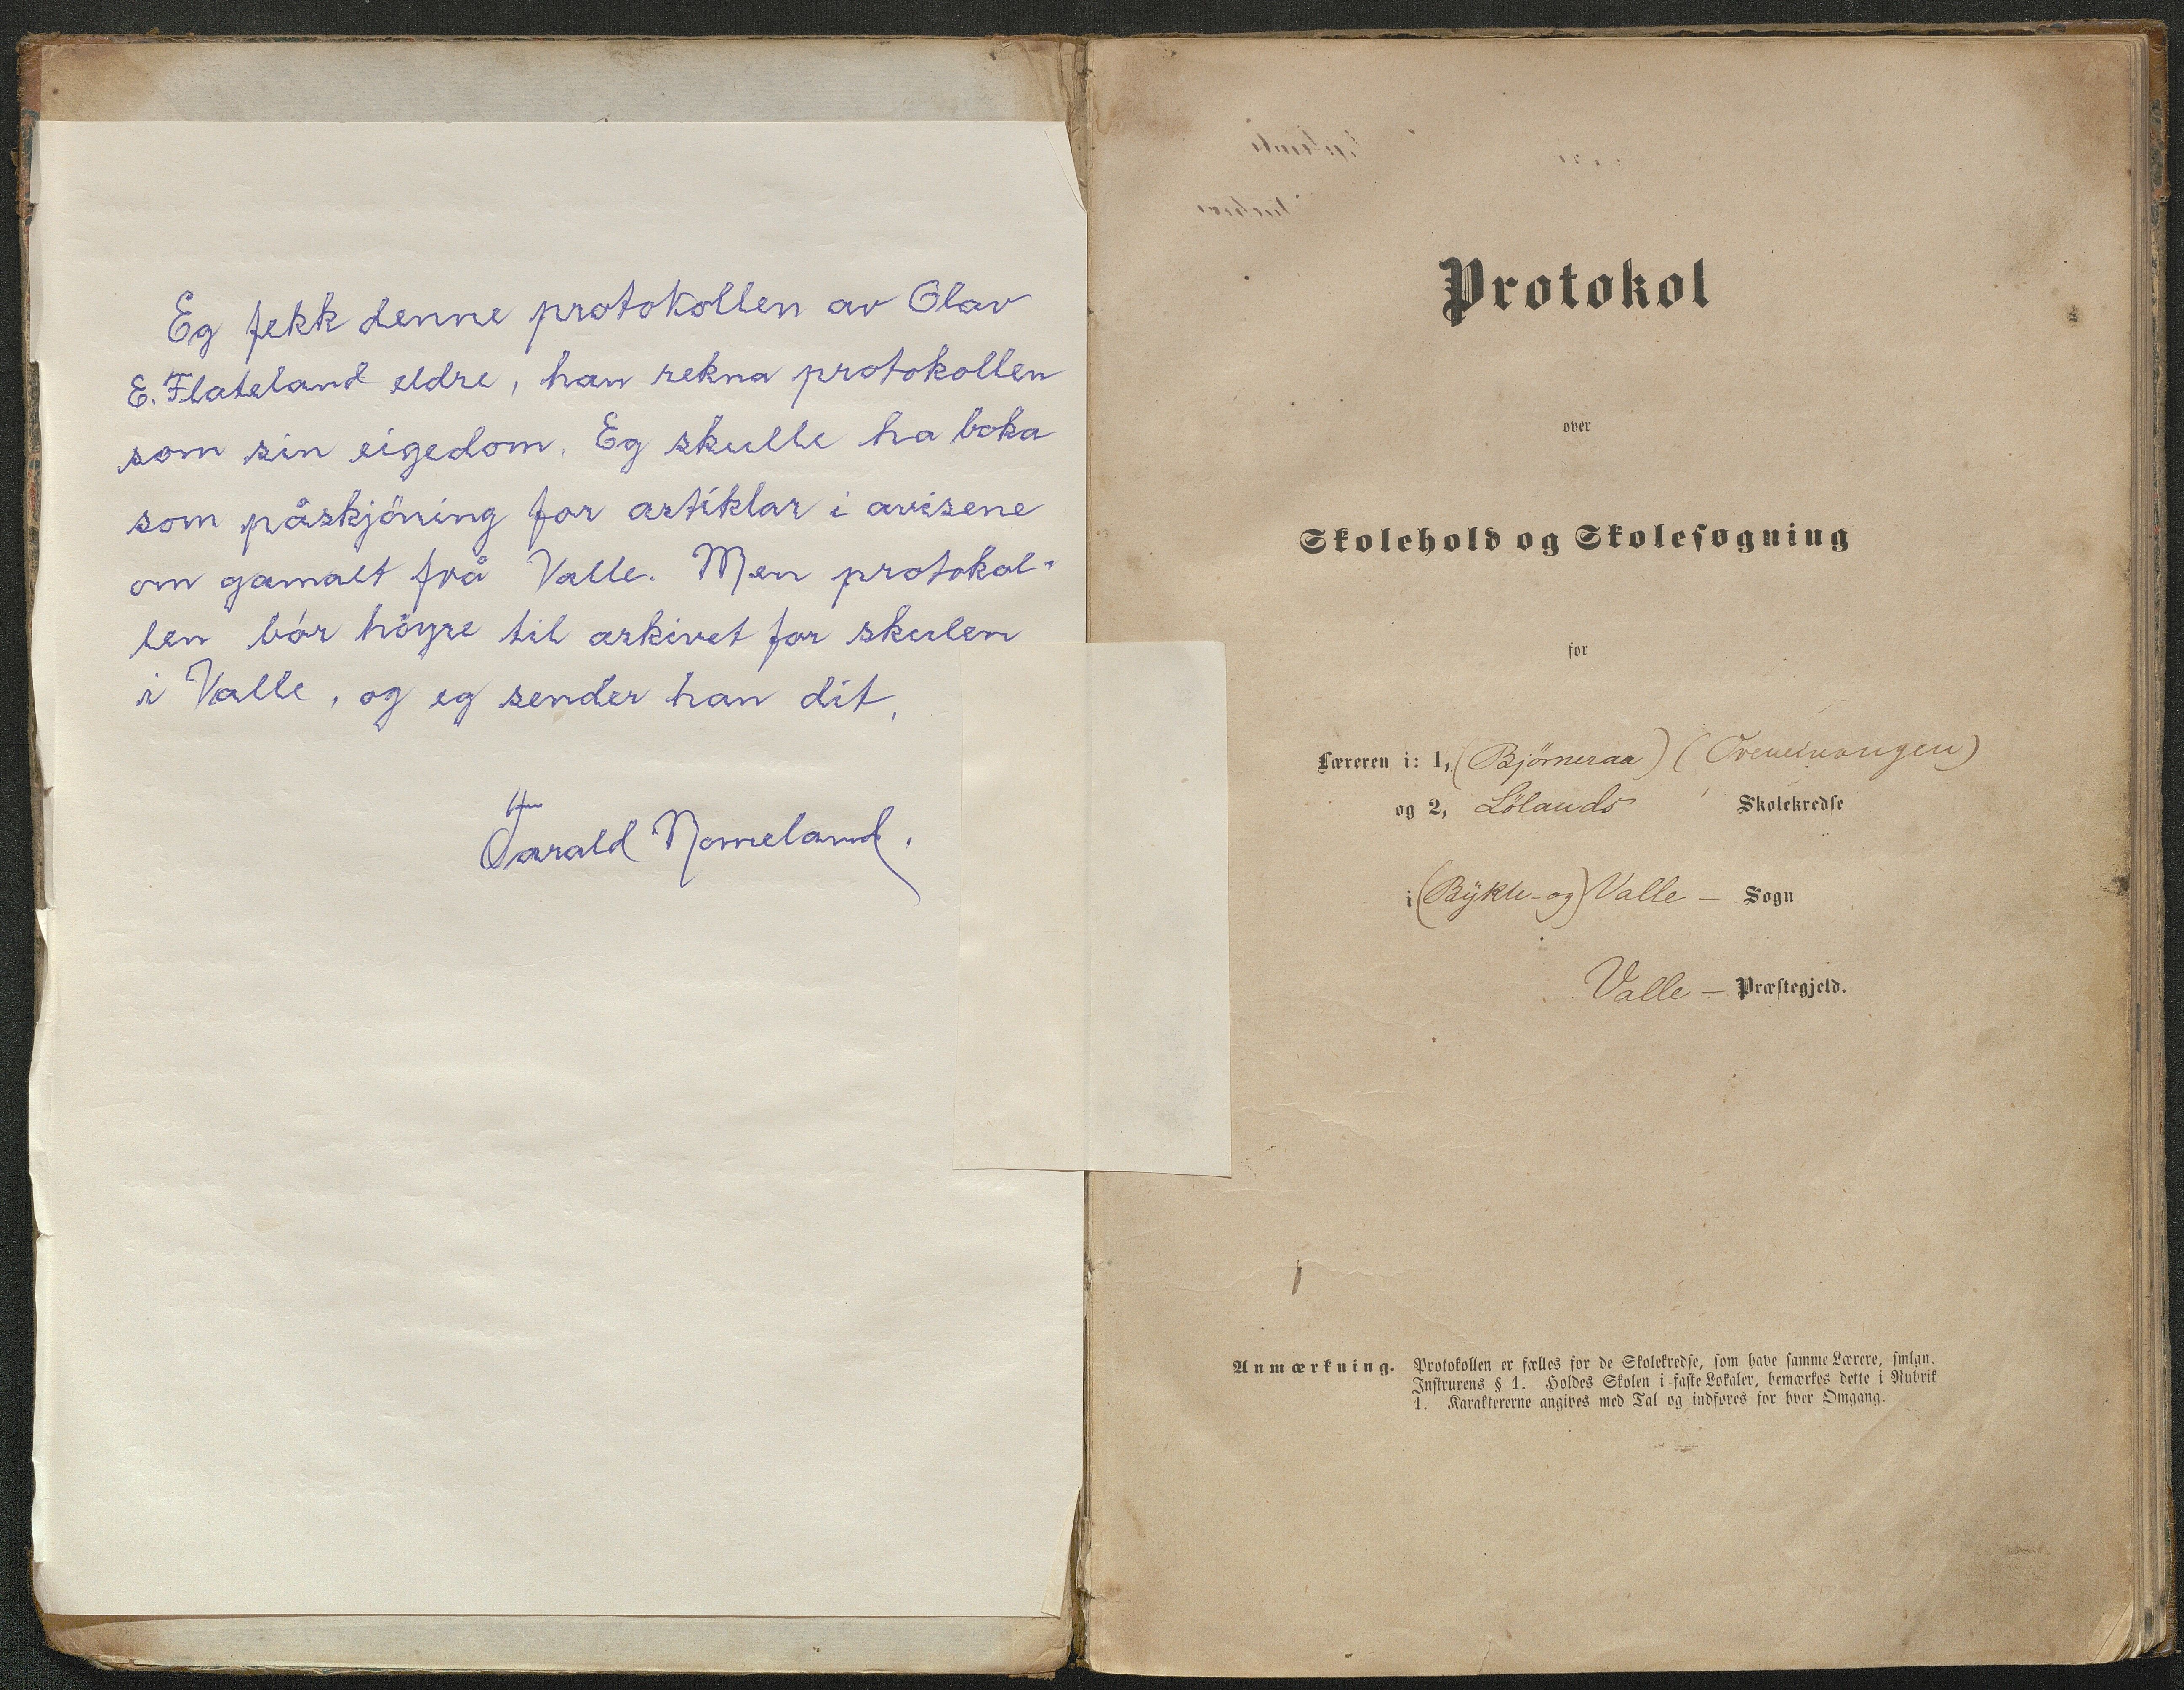 Eg fekk denne protokollen av Olav
E. Flateland eldre, han rekna protokollen
som sin eigedom. Eg skulle ha boka
som påskjöning for artiklar i avisene
om gamalt frå Valle. Men protokol-
len bör höyre til arkivet for skulen
i Valle, og eg sender han dit.
Tarald Nomeland.
Protokol
over
Skolehold og Skolesøgning
for
Læreren i: 1, (Bjørneraa) (
og 2, Lölands Skolekredse
i (Bykle- og) Valle – Sogn
Valle – Præstegjeld.
Anmærkning. Protokollen er fælles for de Skolekredse, som have samme Lærere, smlgn.
Instruxens § 1. Holdes Skolen i faste Lokaler, bemærkes dette i Rubrik
1. Karaktererne angives med Tal og indføres for hver Omgang.